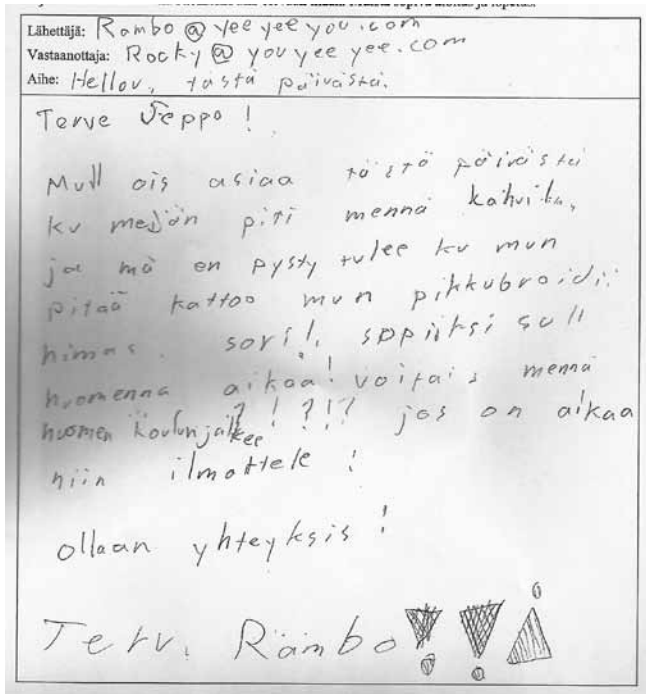 Lähettäjä: Rambo @ yeeyeeyou.com
Vastaanottaja: Rocky @ youyeeyee.com
Aihe: Hellou, tästä päivästä.
Terve Seppo !
Mull ois asiaa tästä päivästä
ku meijän piti mennä kahvila,
ja mä en pysty tulee ku mun
pitää kattoo mun pikkubroidii
himas. sori!. sopiiksi sull
huomenna aikaa! voitais mennä
huomen koulun jälkee ? ! ? ! ? jos on aikaa
niin ilmottele !
ollaan yhteyksis !
Terv. Rämbo